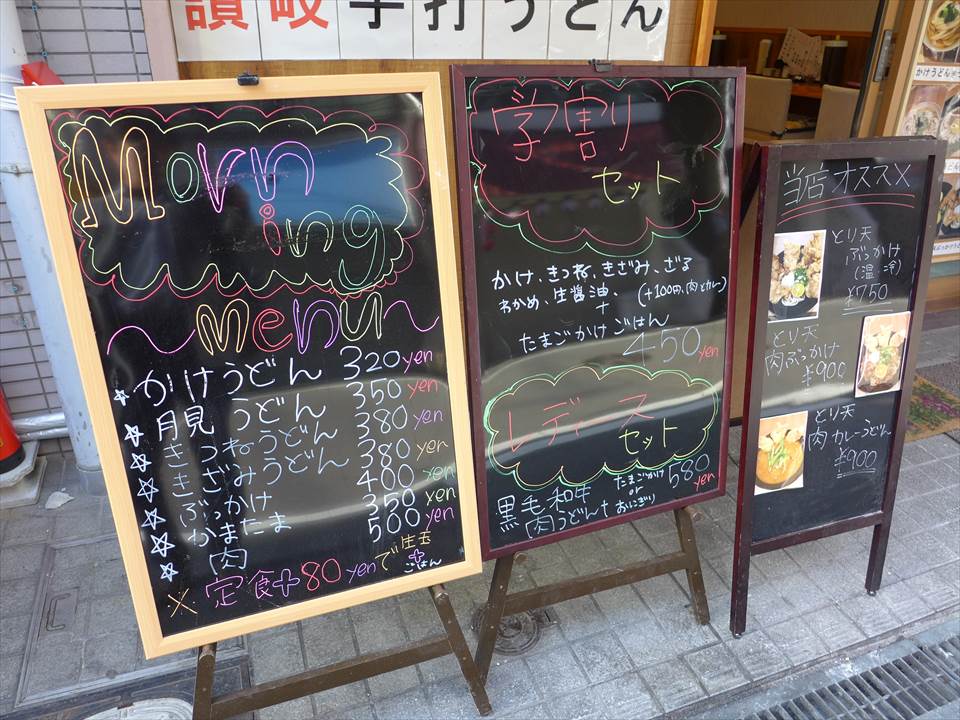 讃岐手打うどん
Morn
ing
menu
かけうどん 320yen
月見うどん 350yen
きつねうどん 380yen
きざみうどん 380yen
ぶっかけ 400yen
かまたま 350yen
肉 500yen
※定食+80yenで生玉+ごはん
学割
セット
かけ、きつね、きざみ、ざる
わかめ、生醤油、(+100円、肉とカレー)
+
たまごかけごはん
450yen
レディース
セット
黒毛和牛
肉うどん+
たまごかけ
or
おにぎり
580yen
当店オススメ
とり天
ぶっかけ
(温 冷)
¥750
とり天
肉ぶっかけ
¥900
とり天
肉カレーうどん
¥900